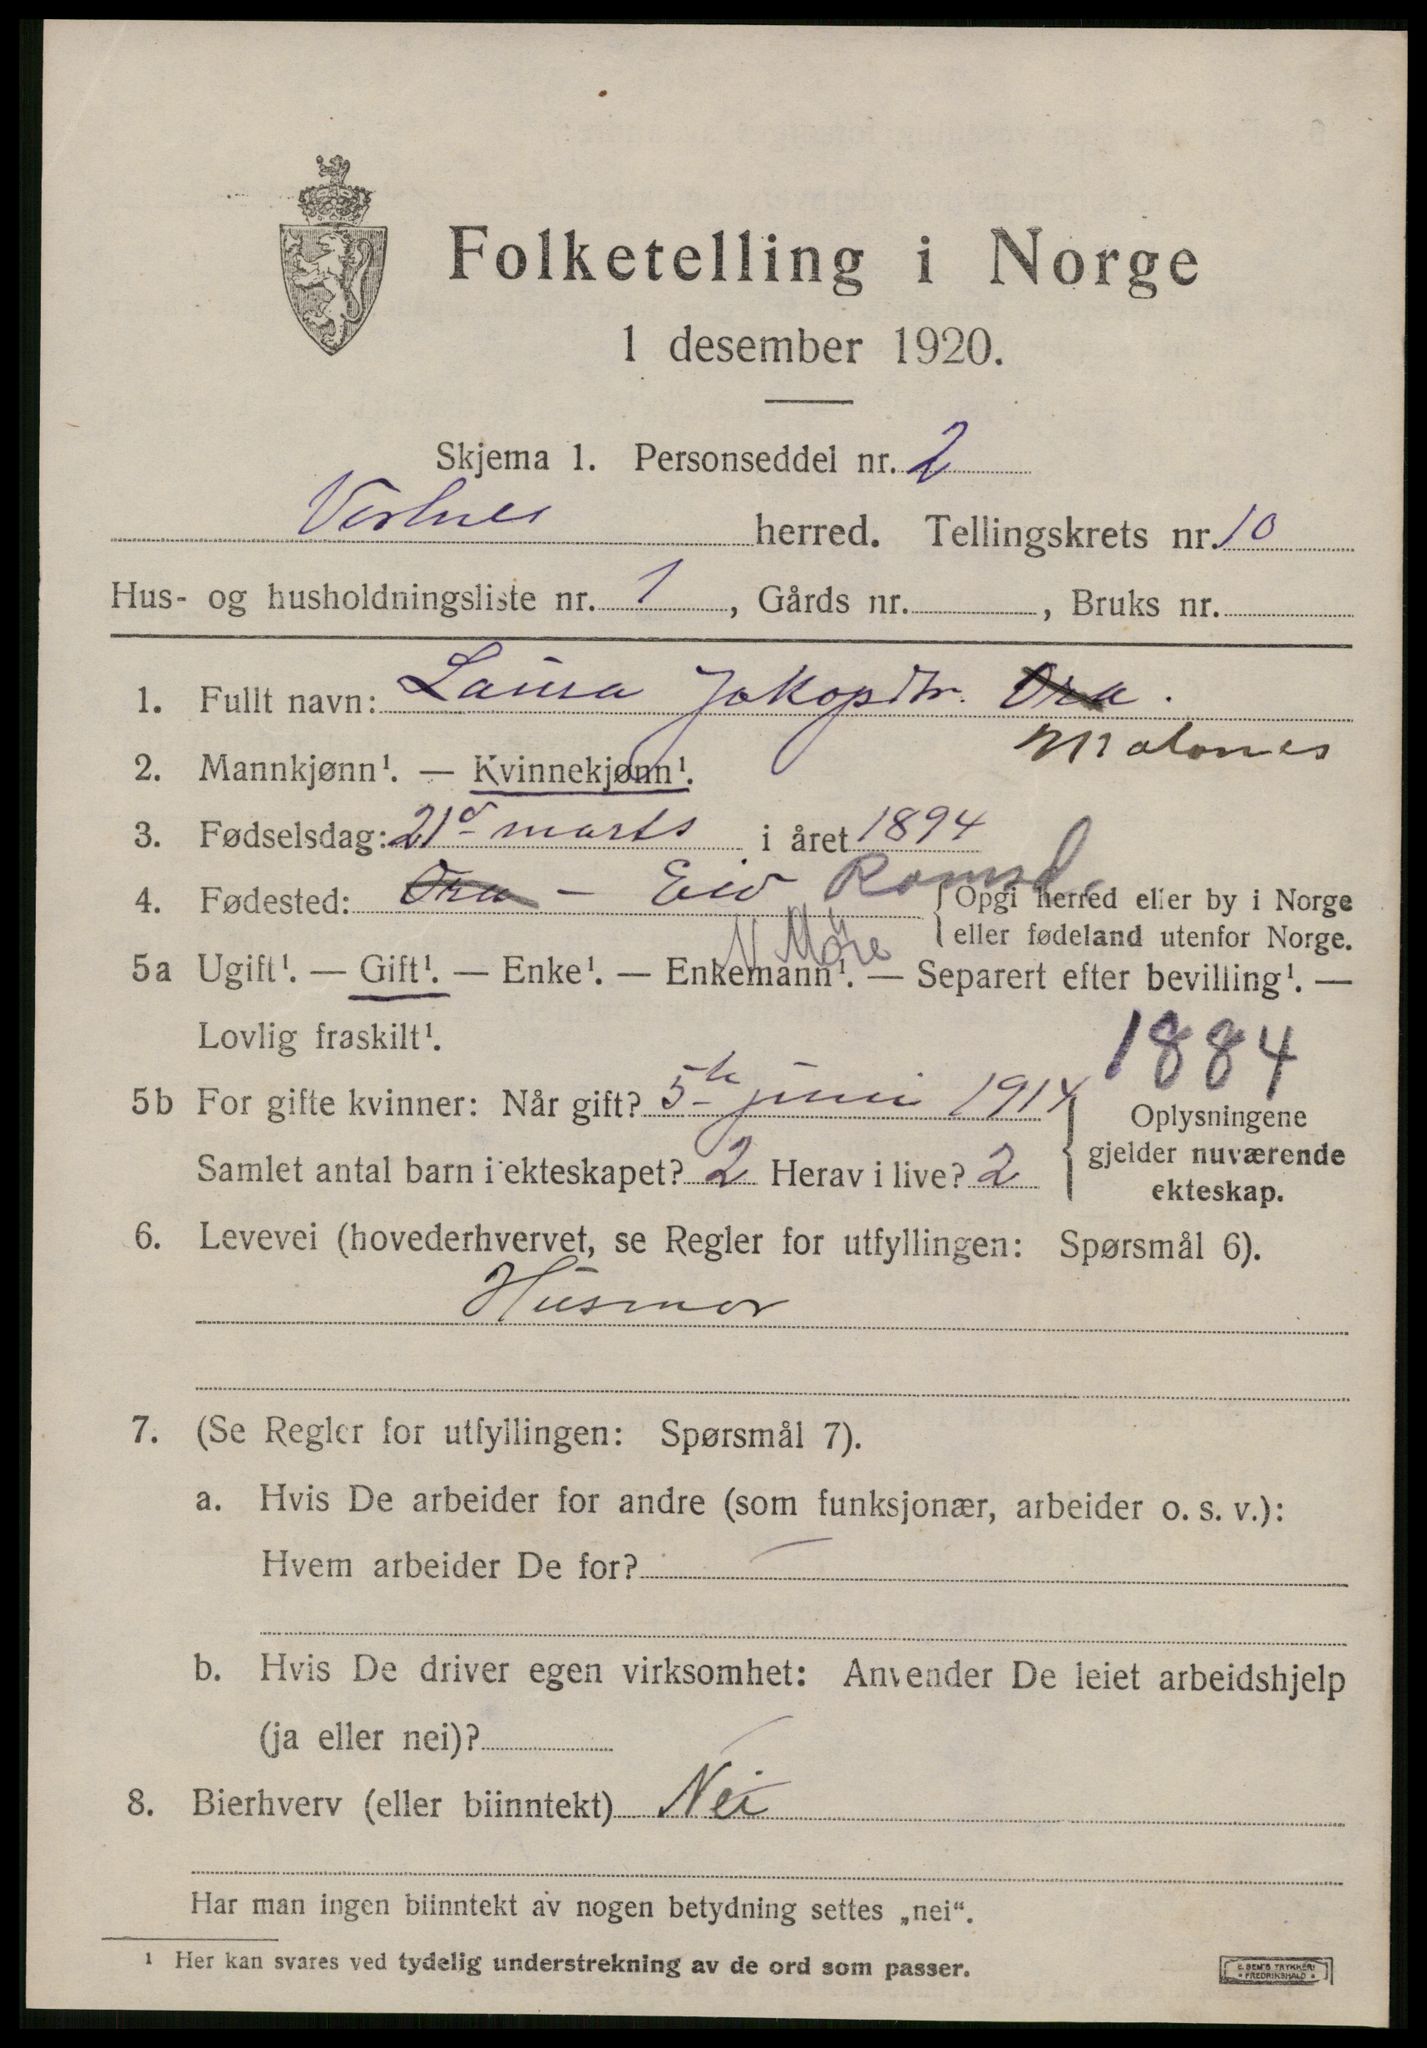 Folketelling i Norge
1 desember 1920.
Skjema 1. Personseddel nr. 2
herred. Tellingskrets nr. 10
Hus- og husholdningsliste nr. 1, Gårds nr. , Bruks nr.
1. Fullt navn: Laura Jakopdtr. Ora.
Malones
2. Mannkjønn¹. — Kvinnekjønn¹.
3. Fødselsdag: 21de marts i året 1894
4. Fødested: Ora - Eid Romsd. { Opgi herred eller by i Norge
N Möre { eller fødeland utenfor Norge.
5a Ugift¹. — Gift¹. — Enke¹. — Enkemann¹. — Separert efter bevilling¹. —
Lovlig fraskilt¹.
1884
5b For gifte kvinner: Når gift? 5te juni 1914 { Oplysningene
gjelder nuværende
Samlet antal barn i ekteskapet? 2 Herav i live? 2 ekteskap.
6. Levevei (hovederhvervet, se Regler for utfyllingen: Spørsmål 6).
Husmor
7. (Se Regler for utfyllingen: Spørsmål 7).
a. Hvis De arbeider for andre (som funksjonær, arbeider o. s. v.):
Hvem arbeider De for? —
b. Hvis De driver egen virksomhet: Anvender De leiet arbeidshjelp
(ja eller nei)?
8. Bierhverv (eller biinntekt) Nei
Har man ingen biinntekt av nogen betydning settes „nei“.
¹ Her kan svares ved tydelig understrekning av de ord som passer.
E. SEM'S TRYKKERI
* FREDRIKSHALD *